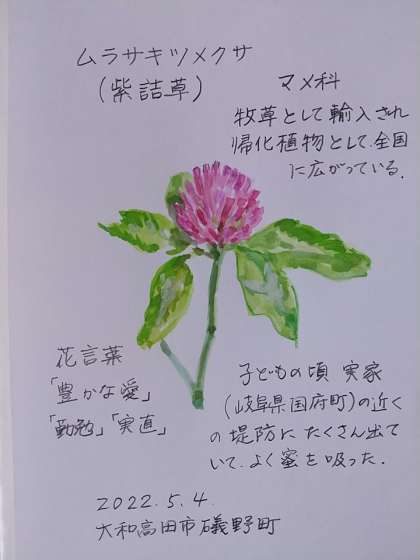 ムラサキツメクサ
(紫詰草)
マメ科
牧草として輸入され
帰化植物として、全国
に広がっている。
花言葉
「豊かな愛」
「勤勉」「実直」
子どもの頃 実家
(岐阜県国府町)の近く
の堤防に たくさん出て
いて、よく蜜を吸った。
2022.5.4.
大和高田市礒野町